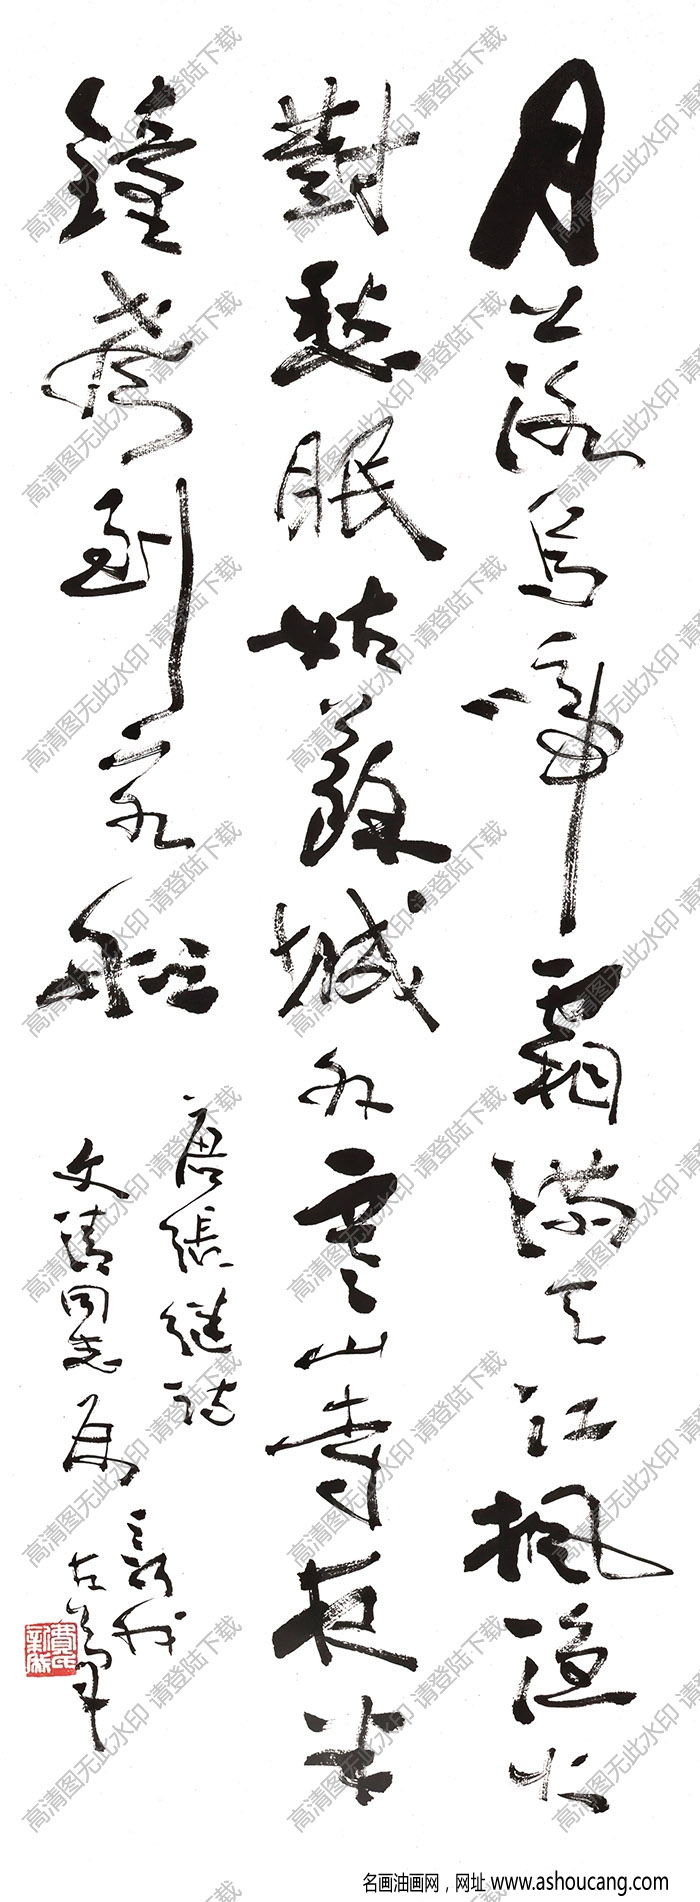 月落烏啼霜滿天江楓漁火
對愁眠姑蘇城外寒山寺夜半
鐘聲到客船
唐張继詩
文清同志属
新我左筆
費氏新我
高清图无此水印 请登陆下载
名画油画网，网址 www.ashoucang.com